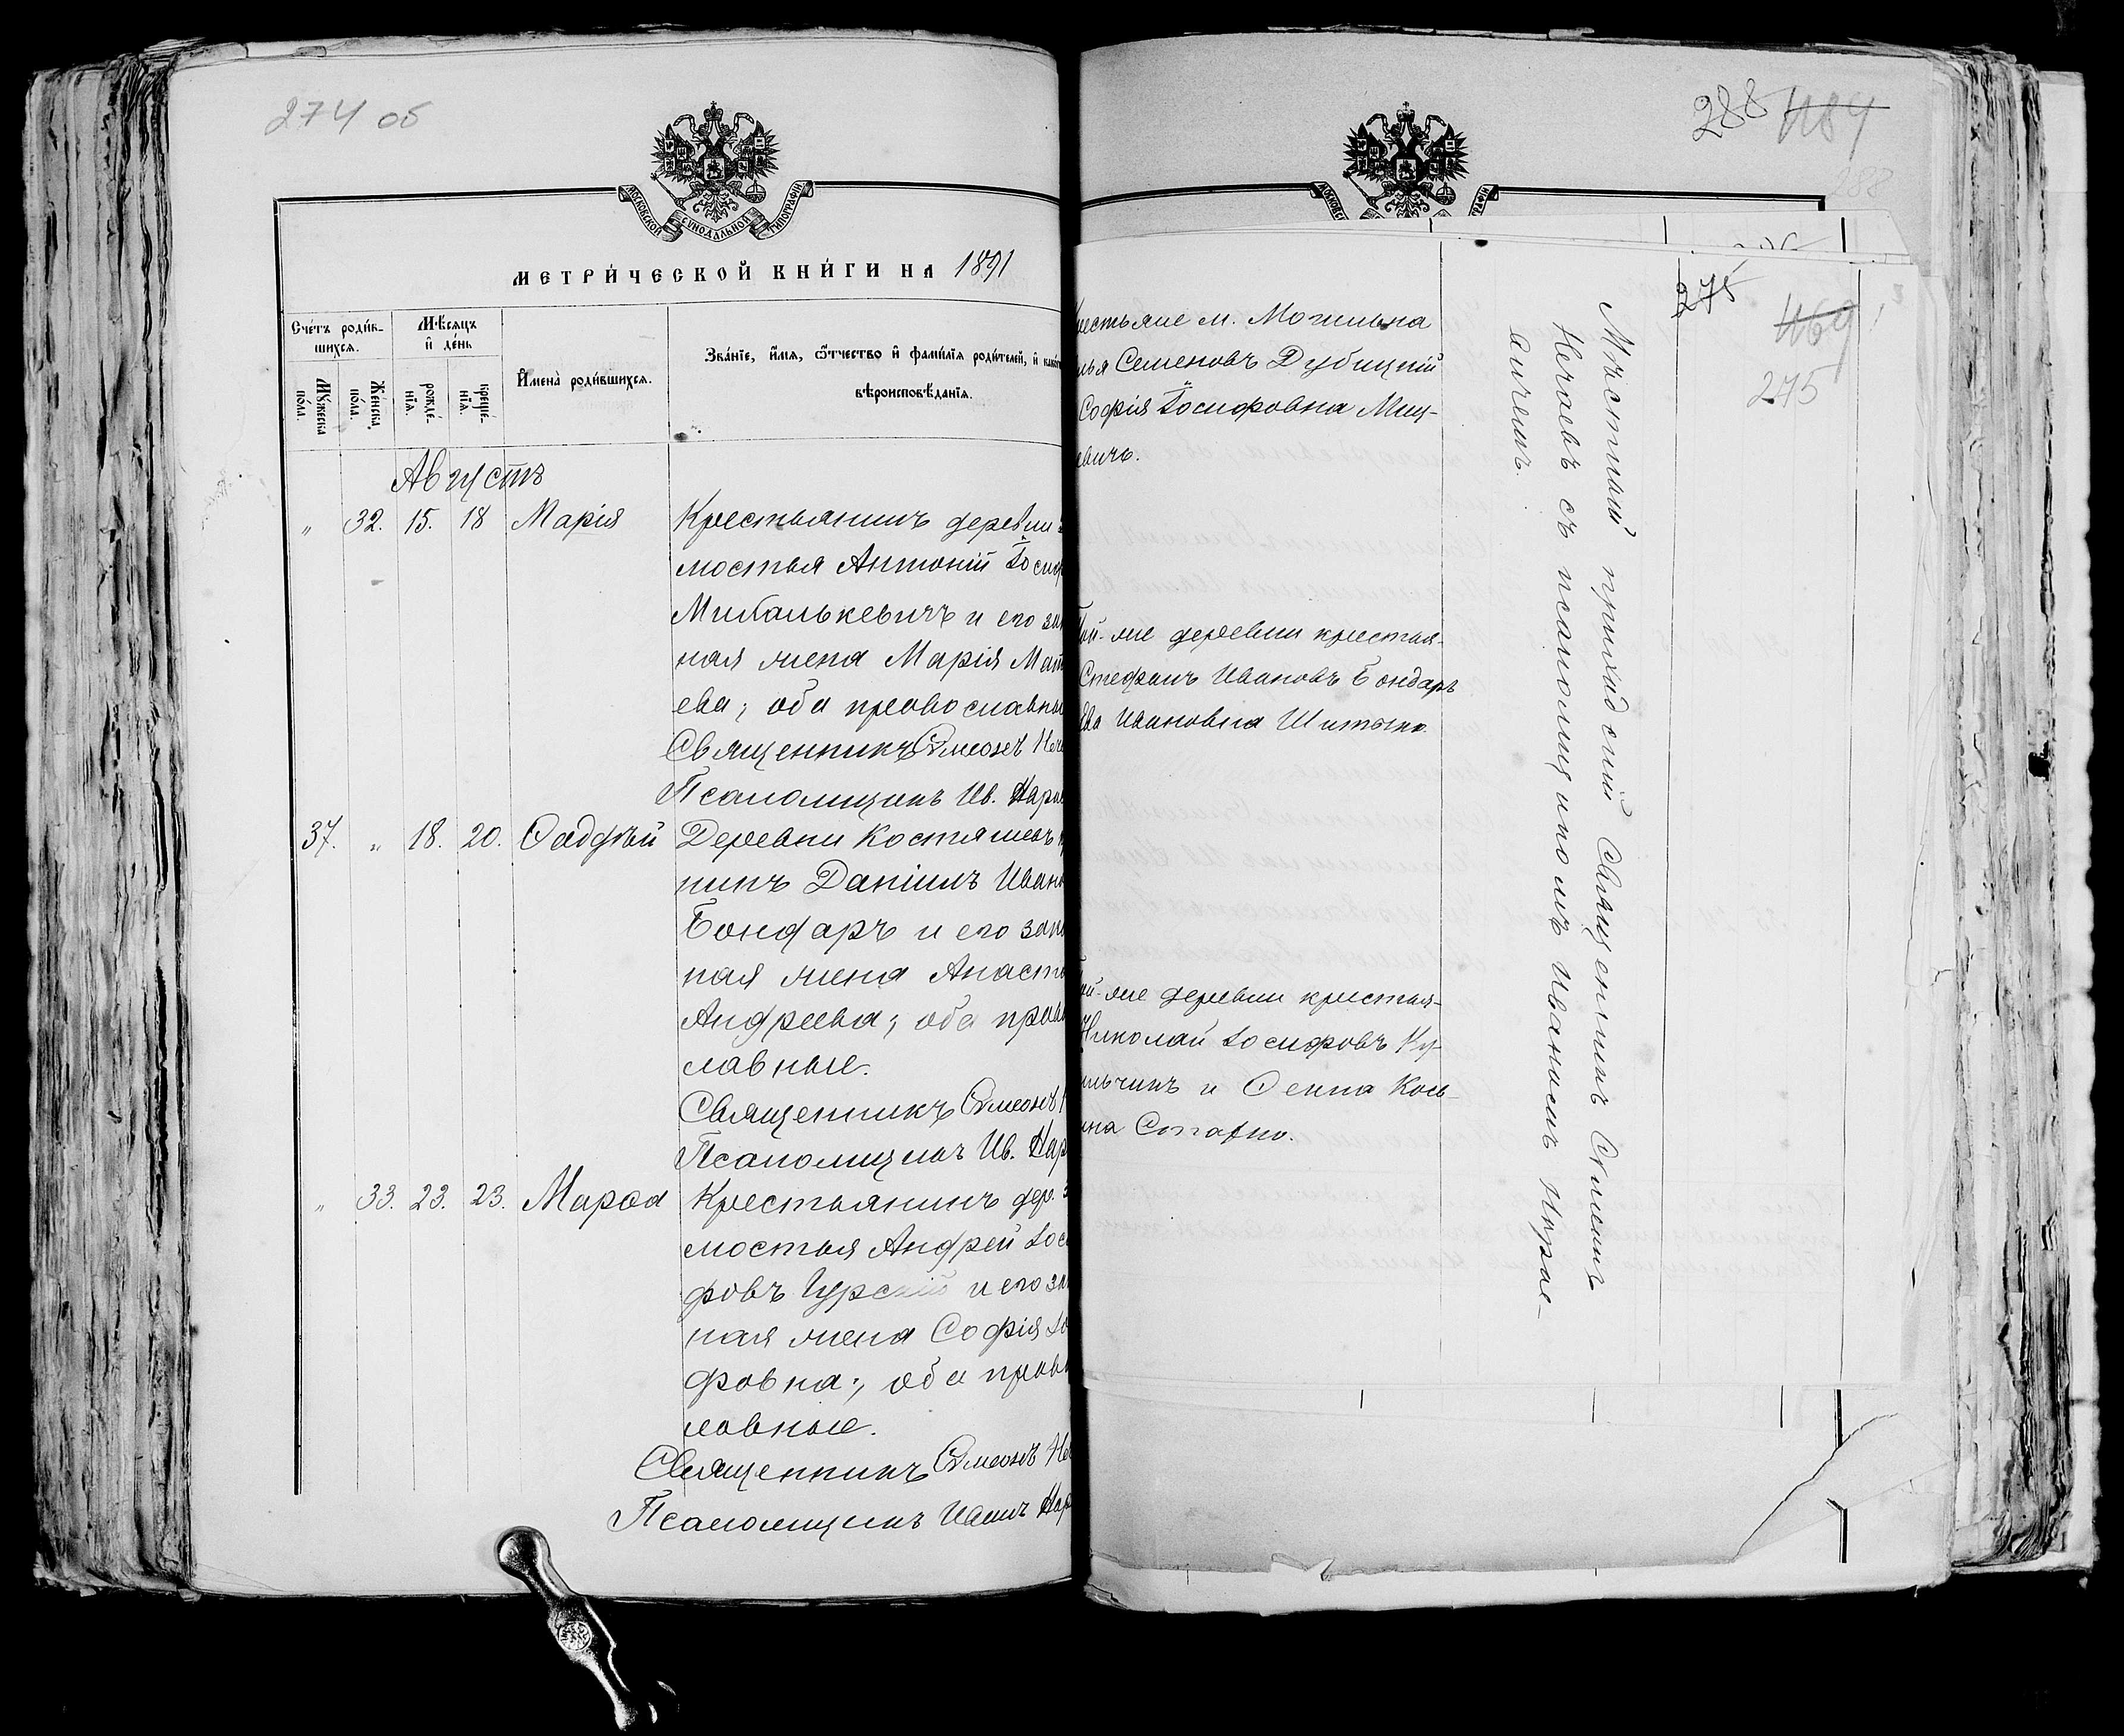 274 об
МОСКОВСКОЙ СѴНОДАЛЬНОЙ ТИПОГРАФІИ
МЕТРИ́ЧЕСКОЙ КНИ́ГИ НА 1891
Сче́тъ роди́в-
шихся.
Мѣ́сяцъ
и҆ де́нь
Мꙋ́жеска
по́ла.
Же́нска
по́ла.
рожде́-
нїѧ.
креще́-
нїѧ.
И҆мена̀ роди́вшихся.
Зва́нїе, и҆́мѧ, ѻ҆́тчество и҆ фами́лїѧ роди́телей, и҆
вѣроисповѣ́данїѧ.
Августъ
„ 32. 15. 18 Марія Крестьянинъ деревни
мостья Антоній Іосиф
Михалькевичъ и его зак
ная жена Марія Мат
ева; оба православные
Священникъ Сѵмеонъ Неч
Псаломщикъ Ив. Нар
37. „ 18. 20. Фаддѣй Деревни Костяшевъ
нинъ Даніилъ Иван
Бондаръ и его зак
ная жена Анаст
Андреева; оба прав
лавные.
Священникъ Сѵмеонъ
Псаломщикъ Ив. Нар
„ 33. 23. 23. Марѳа Крестьянинъ дер.
мостья Андрей Іос
фовъ Гурскій и его за
ная жена Софія Іо
фовна; оба прав
лавные.
Священникъ Сѵмеонъ Не
Псаломщикъ Иванъ Нар
288 1184
естьяне м. Могильна
лья Семеновъ Дубицкій
Софія Іосифовна Миц-
евичъ.
ой-же деревни крестья-
Стефанъ Ивановъ Бондаръ
Ева Ивановна Шитько.
ой-же деревни крестья-
Николай Іосифовъ Ку-
льчикъ и Ѳекла
275
1169
275
Мѣстный приходскій Священникъ Сѵмеонъ
Нечаевъ съ псаломщикомъ Иваномъ